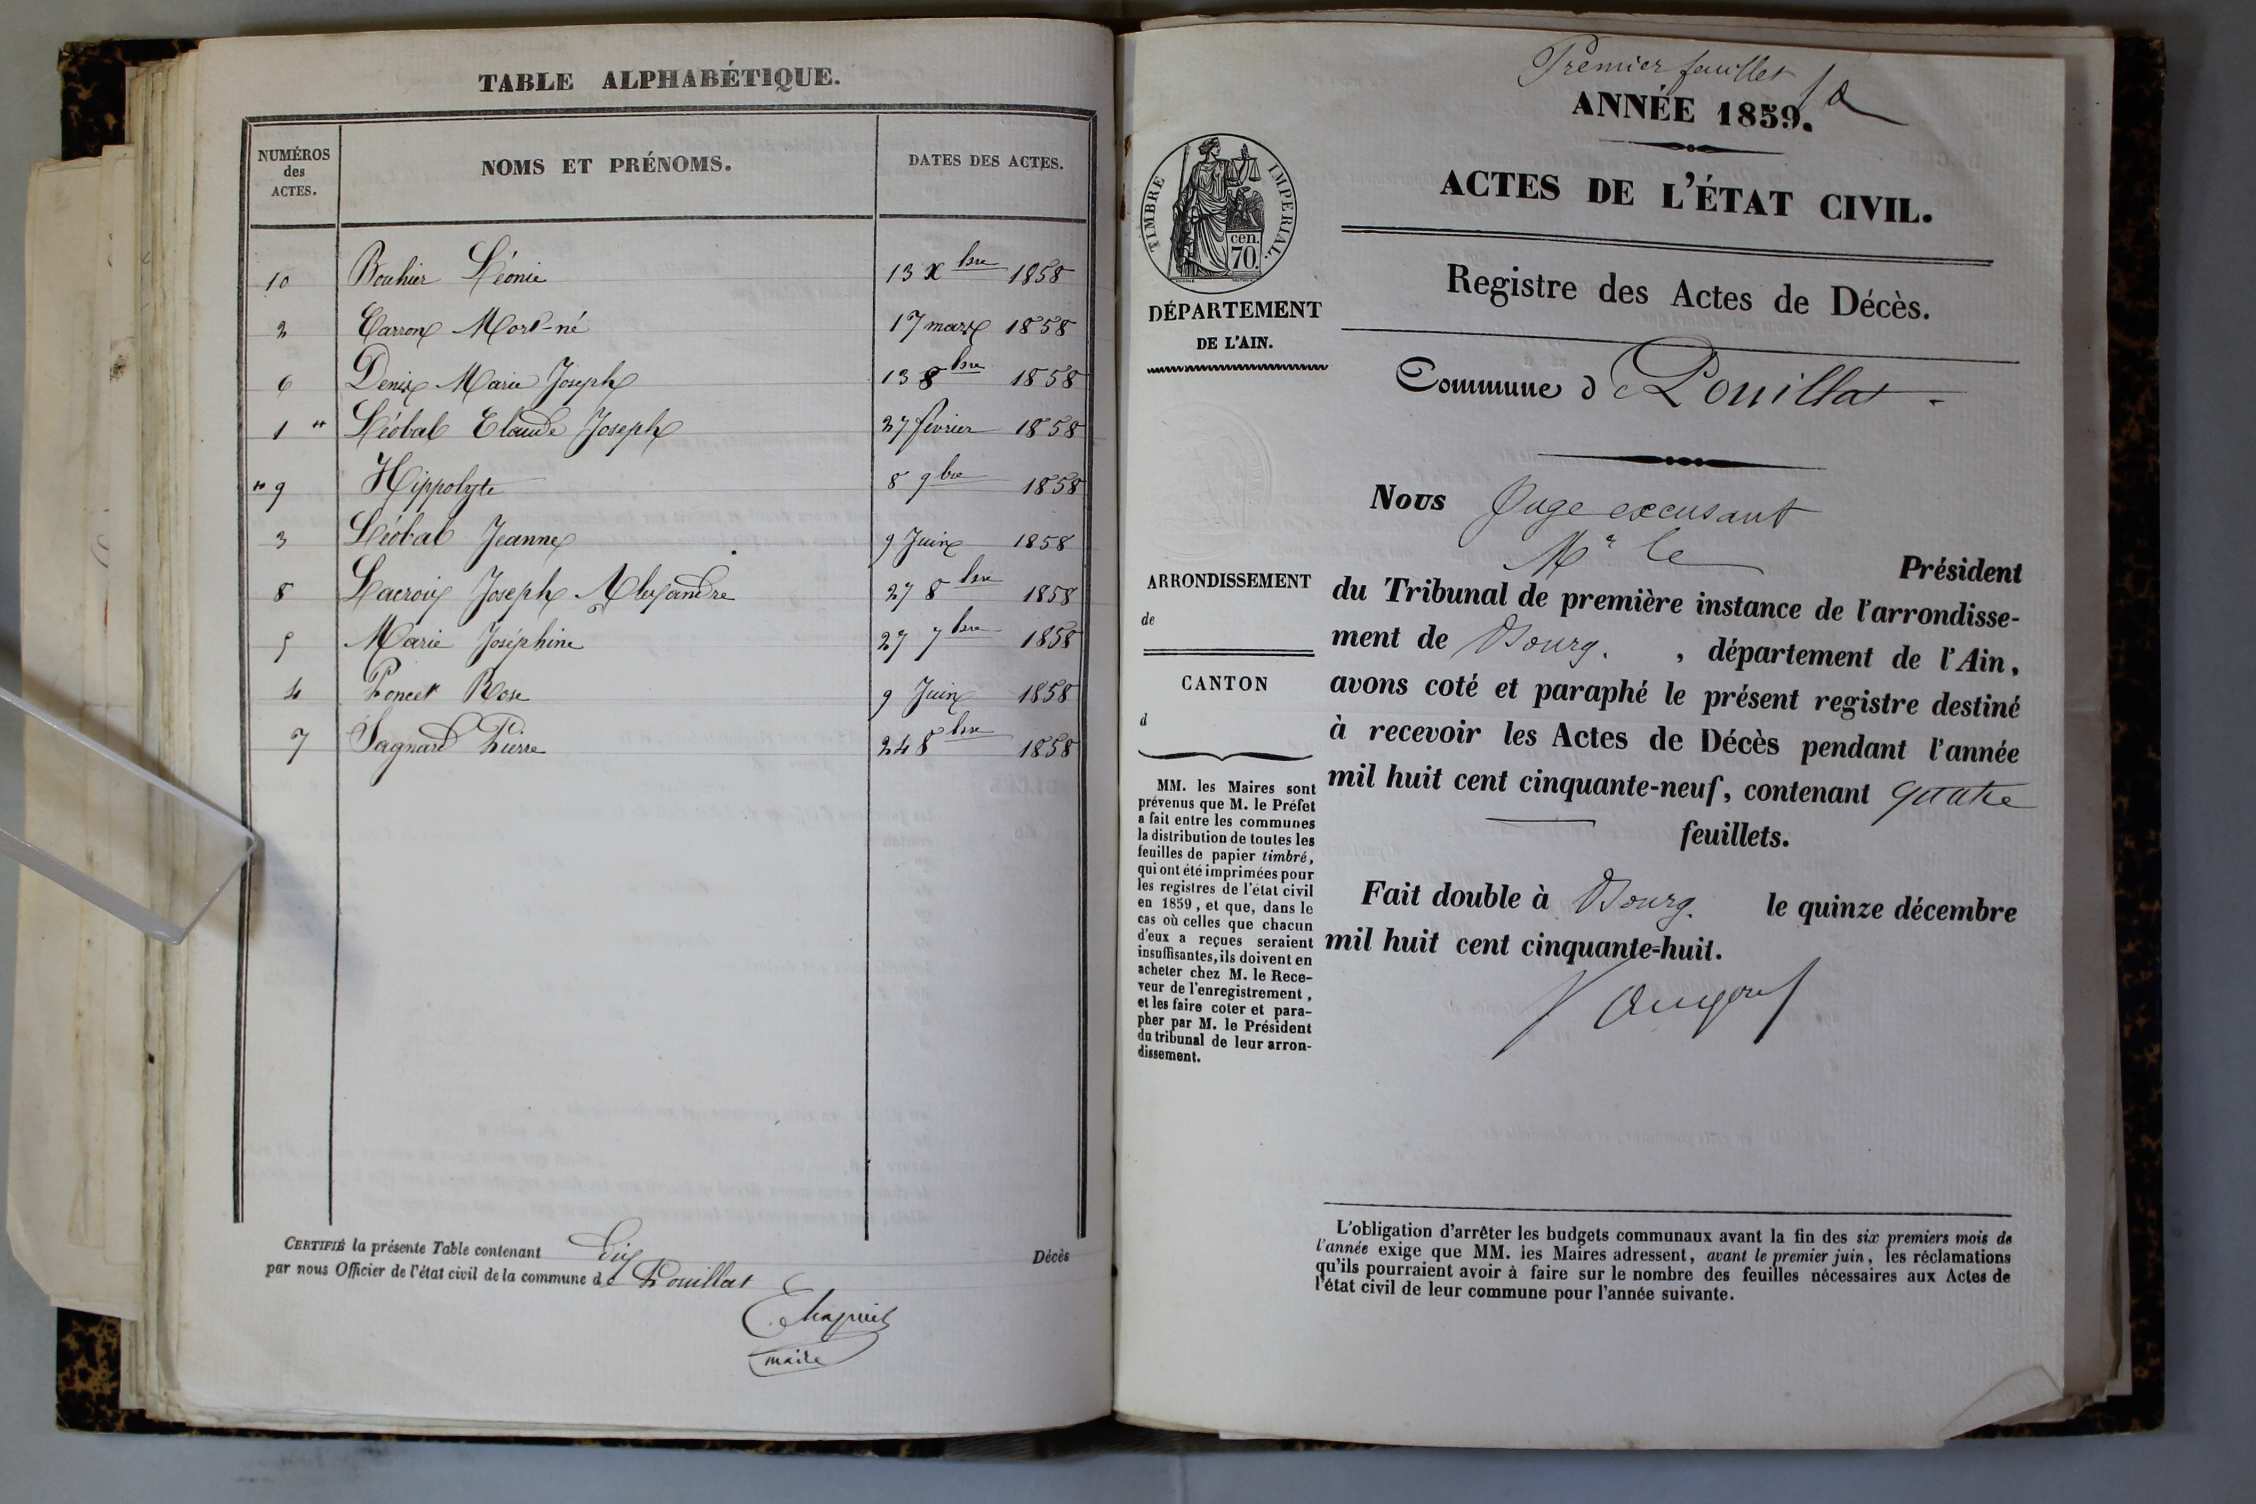 TABLE ALPHABÉTIQUE.
NUMÉROS des ACTES. NOMS ET PRÉNOMS. DATES DES ACTES.
10 Bouhier Léonie 13 Xbre 1858
2 Carron Mort-né 17 mars 1858
6 Denis Marie Joseph 13 8bre 1858
1 " Léobal Claude Joseph 27 février 1858
" 9 Hippolyte 8 9bre 1858
3 Léobal Jeanne 9 Juin 1858
8 Lacroix Joseph Alexandre 27 8bre 1858
5 Marie Joséphine 27 7bre 1858
4 Poncet Rose 9 Juin 1858
7 Sagnard Pierre 24 8bre 1858
CERTIFIÉ la présente Table contenant Dix Décès
par nous Officier de l'état civil de la commune de Pouillat
maire
Premier feuillet
ANNÉE 1859.
ACTES DE L'ÉTAT CIVIL.
Registre des Actes de Décès.
TIMBRE IMPERIAL.
cen.
70.
DÉPARTEMENT
DE L'AIN.
Commune de Pouillat
ARRONDISSEMENT
de
CANTON
d
MM. les Maires sont
prévenus que M. le Préfet
a fait entre les communes
la distribution de toutes les
feuilles de papier timbré,
qui ont été imprimées pour
les registres de l'état civil
en 1859, et que, dans le
cas où celles que chacun
d'eux a reçues seraient
insuffisantes, ils doivent en
acheter chez M. le Rece-
veur de l'enregistrement,
et les faire coter et para-
pher par M. le Président
du tribunal de leur arron-
dissement.
Nous Juge excusant
Mr le Président
du Tribunal de première instance de l'arrondisse-
ment de Bourg. , département de l'Ain,
avons coté et paraphé le présent registre destiné
à recevoir les Actes de Décès pendant l'année
mil huit cent cinquante-neuf, contenant quatre
feuillets.
Fait double à Bourg. le quinze décembre
mil huit cent cinquante-huit.
L'obligation d'arrêter les budgets communaux avant la fin des six premiers mois de
l'année exige que MM. les Maires adressent, avant le premier juin, les réclamations
qu'ils pourraient avoir à faire sur le nombre des feuilles nécessaires aux Actes de
l'état civil de leur commune pour l'année suivante.